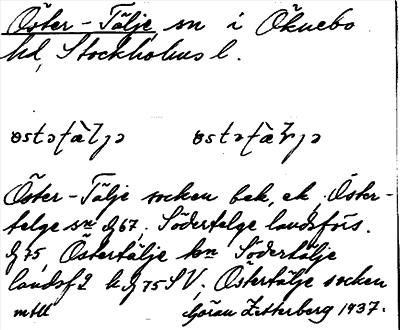 Öster-Tälje sn i Öknebo
hd, Stockholms l.
østətàlɟə østətàrɟə
Öster-Tälje socken bek, ek, Öster-
telge sn Jb 67. Södertelge landsförs.
Jb 75, Östertälje kn Södertälje
landsf 2 h Jb 75 SV; Östertälje socken
mtl Göran Zetterberg 1937.